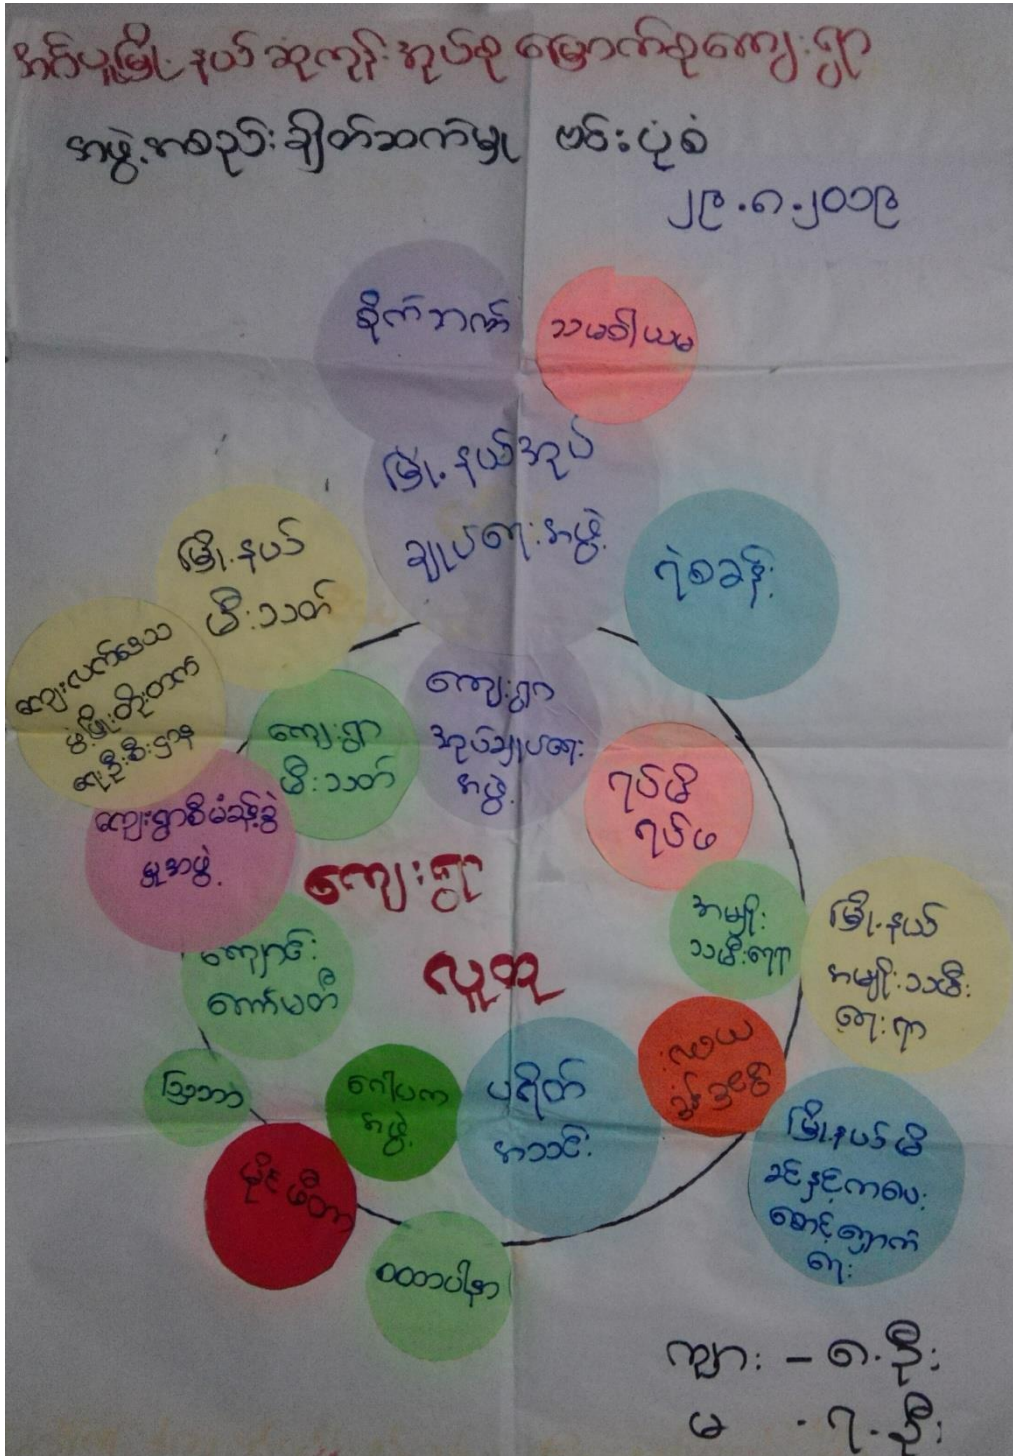 အင်ပူမြို့နယ် ဆူကုန်းအုပ်စု မြောက်စုကျေးရွာ
အဖွဲ့အစည်းချိတ်ဆက်မှု ဗင်းပုံစံ
၂၉.၈.၂၀၁၉
စိုက်ဘဏ်
သမဝါယမ
မြို့နယ်အုပ်
ချုပ်ရေးအဖွဲ့
မြို့နယ်
မီးသတ်
ရဲစခန်း
ကျေးလက်ဒေသ
ဖွံ့ဖြိုးတိုးတက်
ရေးဦးစီးဌာန
ကျေးရွာ
မီးသတ်
ကျေးရွာ
အုပ်ချုပ်ရေး
အဖွဲ့
ရပ်မိ
ရပ်ဖ
ကျေးရွာစီမံခန့်ခွဲ
မှုအဖွဲ့
ကျေးရွာ
လူထု
အမျိုး
သမီးရေးရာ
မြို့နယ်
အမျိုးသမီး
ရေးရာ
ကျောင်း
ကော်မတီ
ဩဘာ
ဂေါပက
အဖွဲ့
ပရိတ်
အသင်း
မြို့နယ်မိ
ခင်နှင့်ကလေး
စောင့်ရှောက်
ရေး
ဝထာပါနာ
ကျား - ၈ ဦး
မ - ၇ ဦး